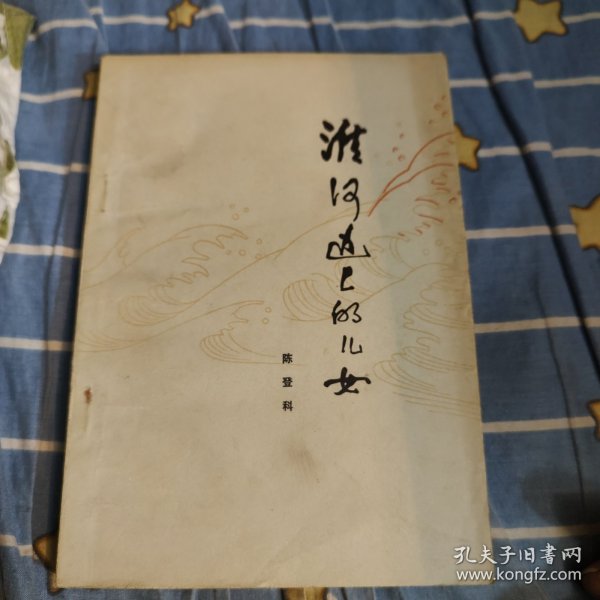 淮河边上的儿女
陈登科
孔夫子旧書网
www.kongfz.com